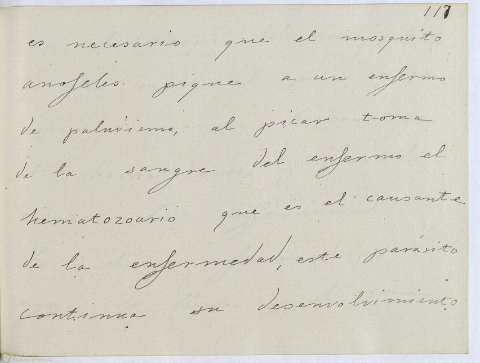 117
es necesario que el mosquito
anofeles pique a un enfermo
de paludismo, al picar toma
de la sangre del enfermo el
hematozoario que es el causante
de la enfermedad, este parásito
continua su desenvolvimiento